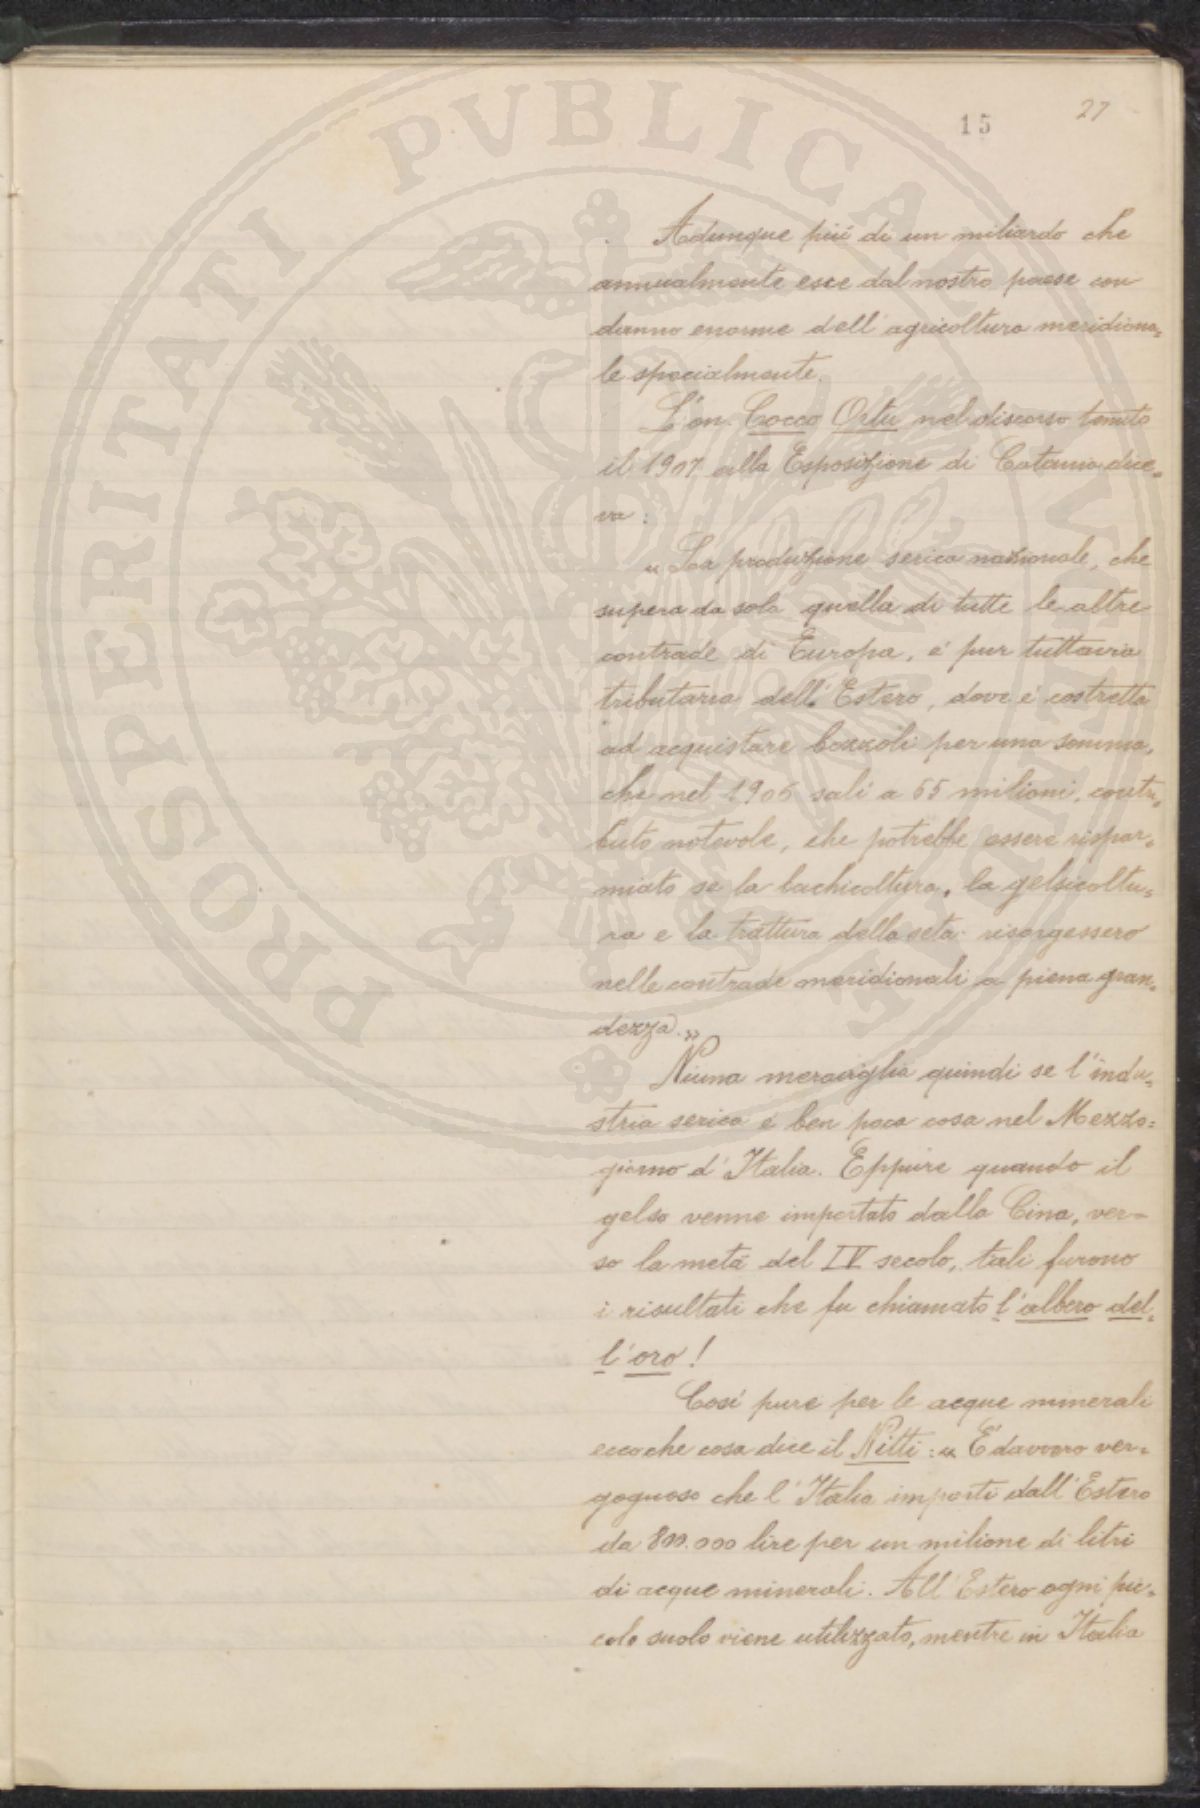 27
15
PROSPERITATI PVBLICAE
Adunque più di un miliardo che
annualmente esce dal nostro paese con
danno enorme dell'agricoltura meridiona=
le specialmente.
L'on. Cocco Ortu nel discorso tenuto
il 1907 alla Esposizione di Catania dice=
va:
« La produzione serica nazionale, che
supera da sola quella di tutte le altre
contrade di Europa, è pur tuttavia
tributaria dell'Estero, dove è costretta
ad acquistare bozzoli per una somma,
che nel 1906 salì a 65 milioni, contri=
buto notevole, che potrebbe essere rispar=
miato se la bachicoltura, la gelsicoltu=
ra e la trattura della seta risorgessero
nelle contrade meridionali a piena gran=
dezza.»
Niuna meraviglia quindi se l'indu=
stria serica è ben poca cosa nel Mezzo=
giorno d'Italia. Eppure quando il
gelso venne importato dalla Cina, ver=
so la metà del IV secolo, tali furono
i risultati che fu chiamato l'albero del=
l'oro!
Così pure per le acque minerali
ecco che cosa dice il Nitti: « È davvero ver=
gognoso che l'Italia importi dall'Estero
da 800.000 lire per un milione di litri
di acque minerali. All'Estero ogni pic=
colo suolo viene utilizzato, mentre in Italia